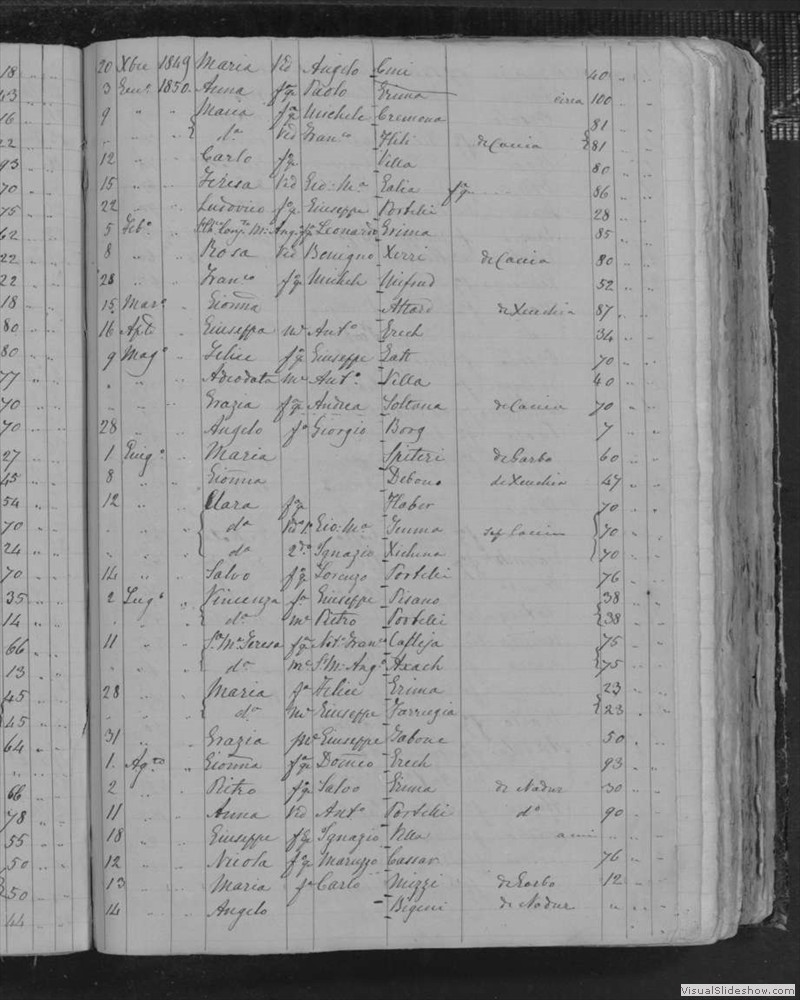 18
20 Xbre 1849 Maria Vid Angelo Cini 40 " "
43 3 Genº 1850 Anna fqª Paolo Grima circa 100
16 9 " " Maria fqª Michele Cremona 81
22 " " dª Vid Francº de Caccia 81
93 12 " " Carlo fqª Villa 80
70 15 " " Teresa Vid Gio: Mª Galia fqª 86
75 22 " " Ludovico fqª Giuseppe Portelli 28
62 5 Febº " Leonardo Grima 85
22 8 " " Rosa Vid Benigno Xerri de Caccia 80
22 28 " " Francº fqª Michele Mifsud 52
18 15 Marº " Gioñna Attard de Xeuchia 87
80 16 Aple " Giuseppa mº Antº Grech 34
80 9 Magº " Felice fqª Giuseppe Zatt 70
77 " " Adeodata mº Antº Villa 40
70 " " Grazia fqª Andrea Soltana de Caccia 70
70 28 " " Angelo fº Giorgio Borg 7
27 1 Giugº " Maria Spiteri de Garbo 60
45 8 " " Gioñna Debono de Xeuchia 47
54 12 " " Clara fqª Haber 70
70 " " dª Vid 1º Gio: Mª 70
24 " " dª 2º Ignazio Xicluna 70
70 14 " " Salvo fqª Lorenzo Portelli 76
35 2 Lugº " Vincenza fª Giuseppe Pisano 38
14 " " dª mº Pietro Portelli 38
66 11 " " Sª Mª Teresa fqª Notº Francº Calleja 75
13 " " dª mº Sº Mº Angº Axach 75
45 28 " " Maria fª Felice Grima 23
45 " " dª mº Giuseppe Farrugia 23
64 31 " " Grazia mº Giuseppe Gabone 50
1 Agto " Gioñna fqª Domeo Grech 93
66 2 " " Pietro fqº Salvo Grima de Nadur 30
78 11 " " Anna Vid Antº Portelli dº 90
55 18 " " Giuseppe fqº Ignazio Villa
50 12 " " Nicola fqº Maruzzo Cassar 76
50 13 " " Maria fª Carlo Mizzi de Garbo 12
44 14 " " Angelo Bigeni de Nadur "
VisualSlideshow.com